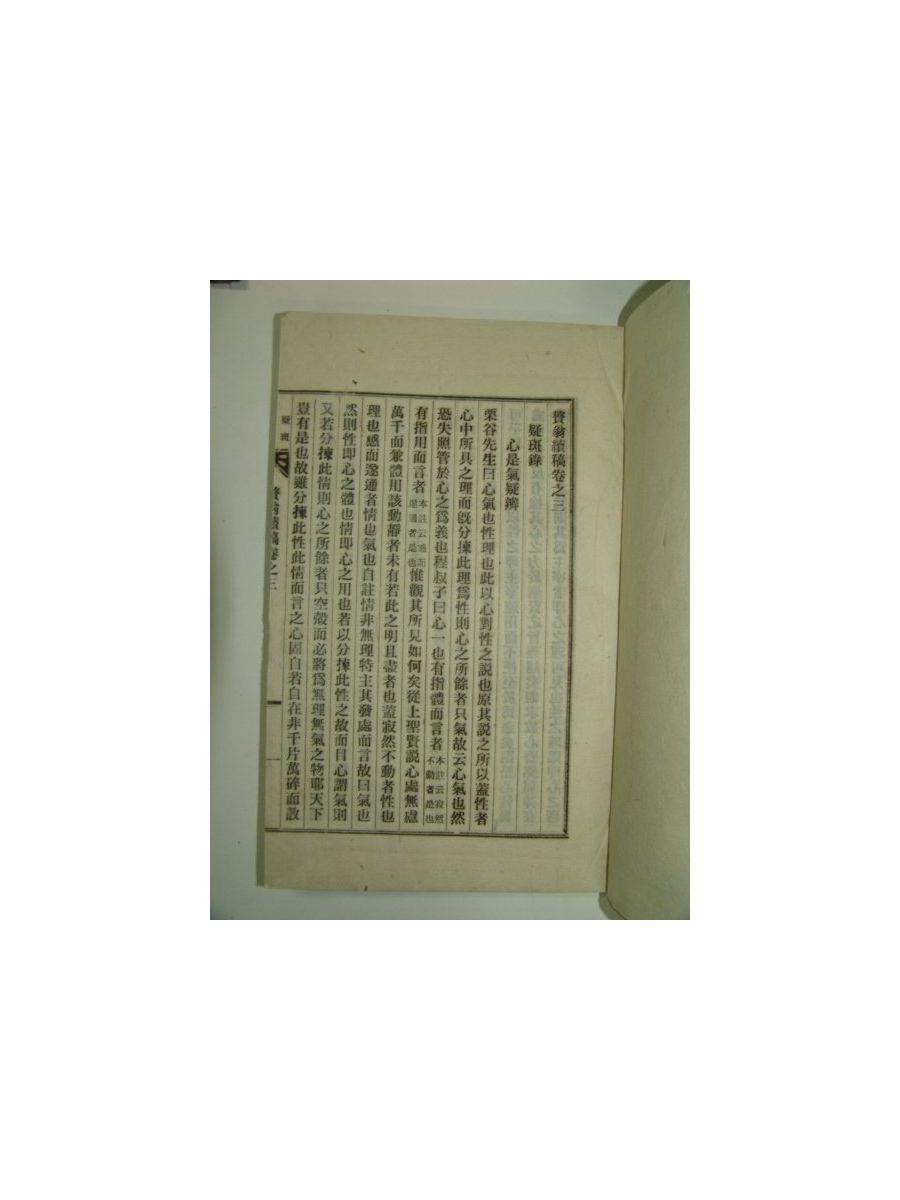 贅翁續稿卷之三
疑斑錄
心是氣疑辨
栗谷先生曰心氣也性理也此以心對性之說也原其說之所以蓋性者
心中所具之理而旣分揀此理爲性則心之所餘者只氣故云心氣也然
恐失照管於心之爲義也程叔子曰心一也有指體而言者本註云寂然不動者是也
有指用而言者本註云感而遂通者是也惟觀其所見如何矣從上聖賢說心處無慮
萬千而兼體用該動靜者未有若此之明且盡者也蓋寂然不動者性也
理也感而遂通者情也氣也自註情非無理特主其發處而言故曰氣也
然則性卽心之體也情卽心之用也若以分揀此性之故而目心謂氣則
又若分揀此情則心之所餘者只空殼而必將爲無理無氣之物耶天下
豈有是也故雖分揀此性此情而言之心固自若自在非千片萬碎而設
疑斑
贅翁續稿卷之三
一